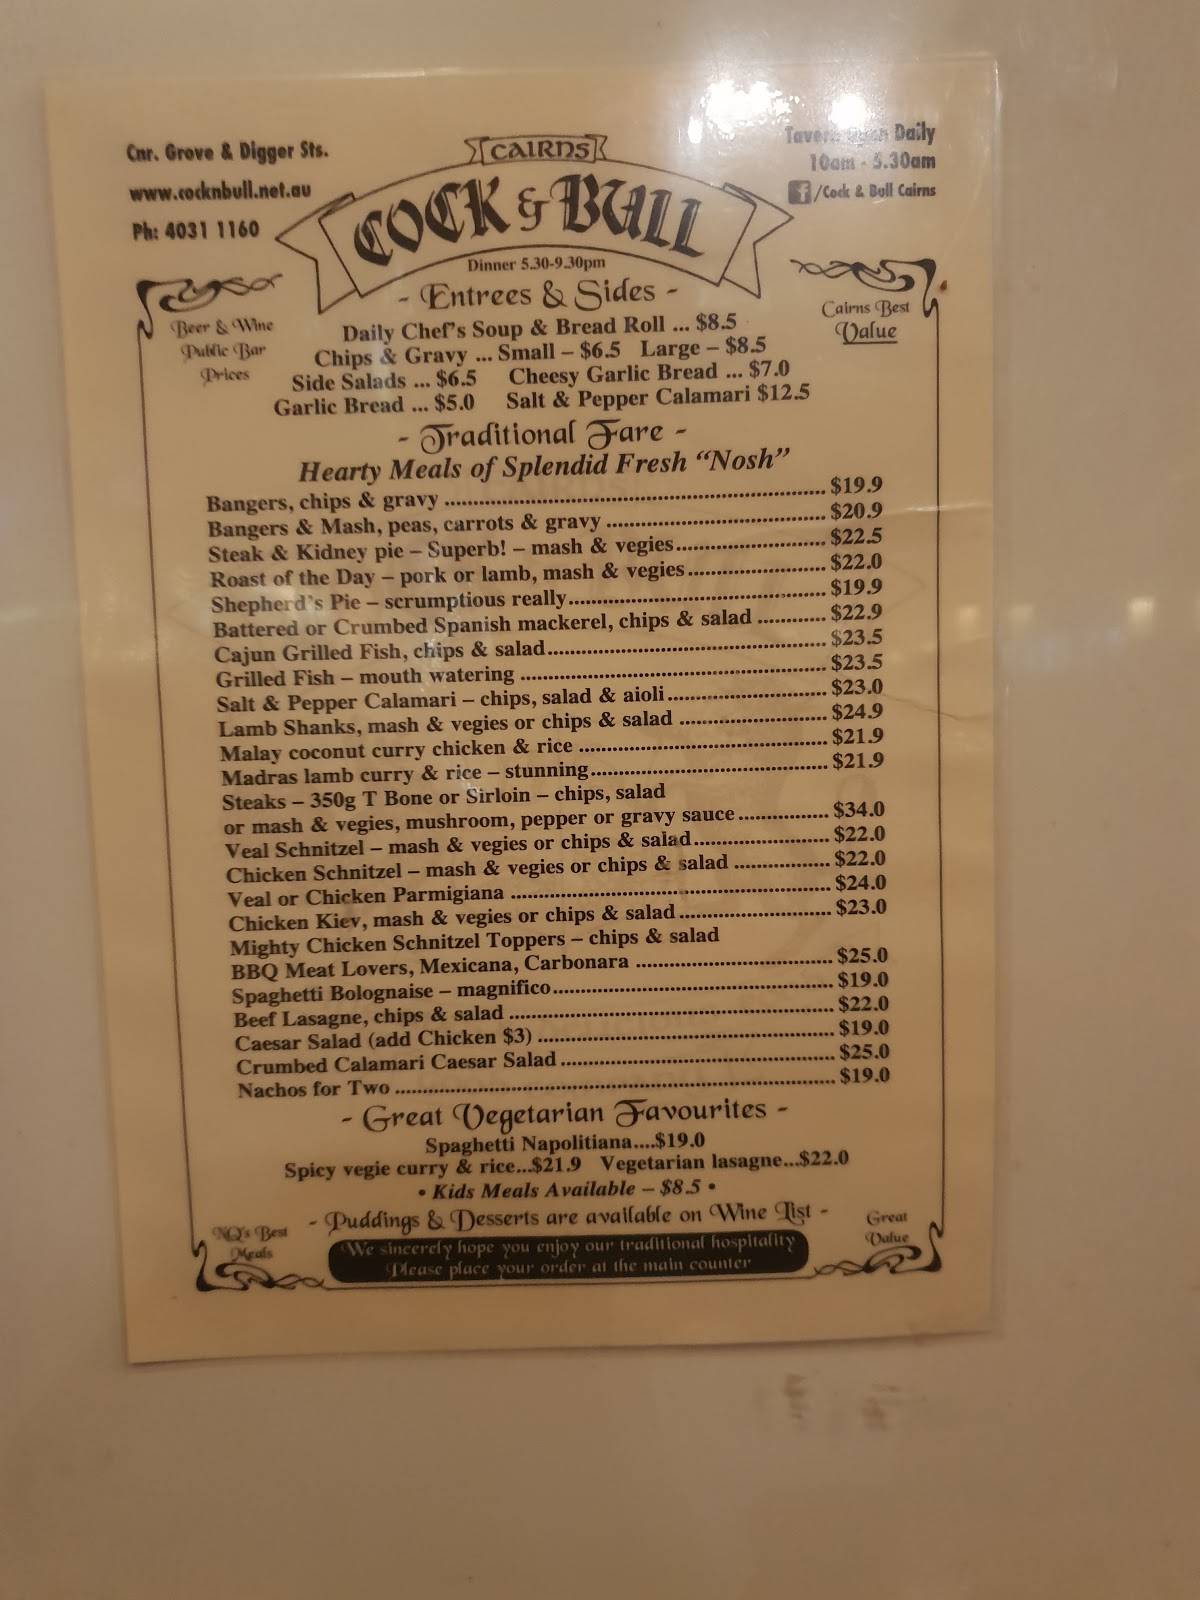 Cnr. Grove & Digger Sts.
www.cocknbull.net.au
Ph: 4031 1160
CAIRNS
COCK & BULL
Dinner 5.30-9.30pm
Tavern Daily
10am - 5.30am
f/Cock & Bull Cairns
Beer & Wine
Public Bar
Prices
Cairns Best
Value
- Entrees & Sides -
Daily Chef's Soup & Bread Roll ... $8.5
Chips & Gravy ... Small – $6.5 Large – $8.5
Side Salads ... $6.5 Cheesy Garlic Bread ... $7.0
Garlic Bread ... $5.0 Salt & Pepper Calamari $12.5
- Traditional Fare -
Hearty Meals of Splendid Fresh “Nosh”
Bangers, chips & gravy ........ $19.9
Bangers & Mash, peas, carrots & gravy ........ $20.9
Steak & Kidney pie – Superb! – mash & vegies........ $22.5
Roast of the Day – pork or lamb, mash & vegies........ $22.0
Shepherd's Pie – scrumptious really........ $19.9
Battered or Crumbed Spanish mackerel, chips & salad ........ $22.9
Cajun Grilled Fish, chips & salad........ $23.5
Grilled Fish – mouth watering ........ $23.5
Salt & Pepper Calamari – chips, salad & aioli........ $23.0
Lamb Shanks, mash & vegies or chips & salad ........ $24.9
Malay coconut curry chicken & rice ........ $21.9
Madras lamb curry & rice – stunning........ $21.9
Steaks – 350g T Bone or Sirloin – chips, salad
or mash & vegies, mushroom, pepper or gravy sauce ........ $34.0
Veal Schnitzel – mash & vegies or chips & salad........ $22.0
Chicken Schnitzel – mash & vegies or chips & salad ........ $22.0
Veal or Chicken Parmigiana ........ $24.0
Chicken Kiev, mash & vegies or chips & salad ........ $23.0
Mighty Chicken Schnitzel Toppers – chips & salad
BBQ Meat Lovers, Mexicana, Carbonara ........ $25.0
Spaghetti Bolognaise – magnifico........ $19.0
Beef Lasagne, chips & salad ........ $22.0
Caesar Salad (add Chicken $3) ........ $19.0
Crumbed Calamari Caesar Salad ........ $25.0
Nachos for Two ........ $19.0
- Great Vegetarian Favourites -
Spaghetti Napolitiana....$19.0
Spicy vegie curry & rice...$21.9 Vegetarian lasagne...$22.0
• Kids Meals Available – $8.5 •
- Puddings & Desserts are available on Wine List -
NQ's Best
Meals
Great
Value
We sincerely hope you enjoy our traditional hospitality
Please place your order at the main counter